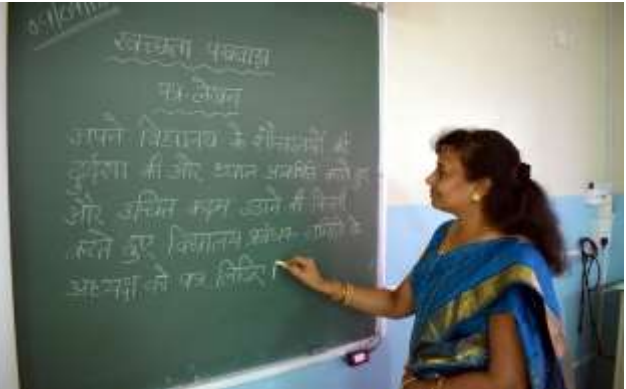 स्वच्छता पखवाड़ा
पत्र-लेखन
अपने विद्यालय के शौचालयों की
दुर्दशा की ओर ध्यान आकर्षित करते हुए
और उचित कदम उठाने की
करते हुए विद्यालय प्रबंधन समिति के
अध्यक्ष को पत्र लिखिए।